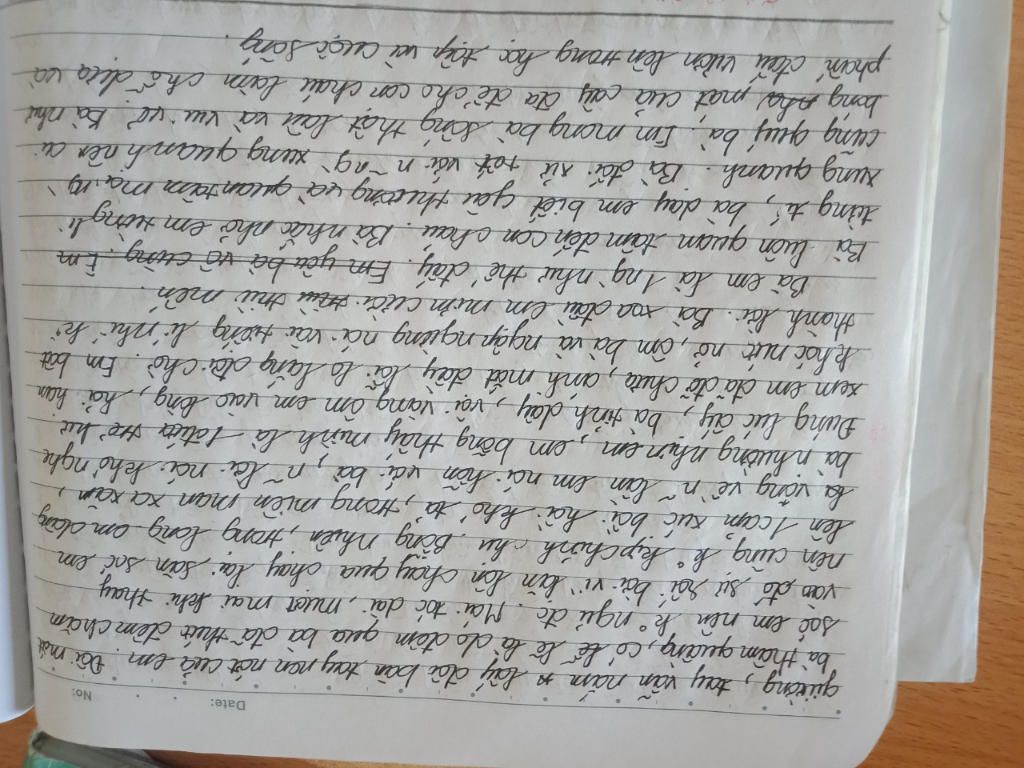 No:
Date:
giường, tay vẫn nắm lấy đôi bàn tay non nớt của em. Đôi mắt
bà thâm quầng, có lẽ là do đêm qua bà đã thức đêm chăm
sóc em nên k° ngủ đc. Mái tóc dài, mượt mai khi thay
vào đó sự rối bời vì bận chạy qua chạy lại săn sóc em
nên cũng k° kịp chỉnh chu. Bỗng nhiên, trong lòng em dâng
lên 1 cảm xúc bồi hồi khó tả, trong miền man xa xăm,
là vọng về n~ lần em nói hỗn với bà, n~ lời nói khó nghe
bà nhường nhịn em, em bỗng thấy mình là 1 đứa trẻ hư
Đúng lúc ấy, bà tỉnh dậy, vội vàng ôm em vào lòng, hỏi han
xem em đã đỡ chưa, ánh mắt đầy lời lo lắng đợi chờ. Em bật
khóc nức nở, ôm bà và ngập ngừng nói vài tiếng lí nhí k°
thành lời. Bà xoa đầu em mỉm cười trìu mến.
Bà em là 1 ng như thế đấy. Em yêu bà vô cùng. Em
Bà luôn quan tâm đến con cháu. Bà nhắc nhở em từng li
từng tí, bà dạy em biết yêu thương và quan tâm mọi ng`
xung quanh. Bà đối xử tốt với n~ ng` xung quanh nên ai
cũng quý bà. Em mong bà sống thật lâu và vui vẻ. Bà như
bóng mát của cây đa để cho con cháu làm chỗ dựa và
phấn đấu vươn lên trong học tập và cuộc sống.